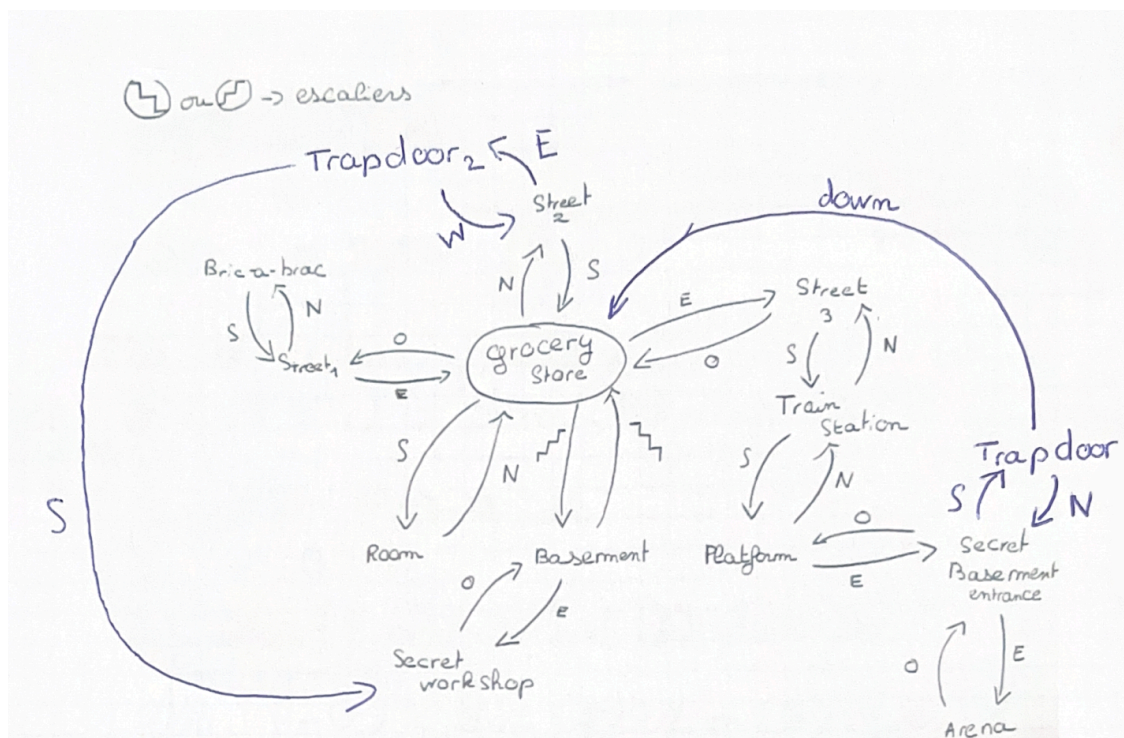 ou -> escaliers
Trapdoor 2
E
Street
2
W
down
Bric a-brac
N
S
N
S
Street 1
O
E
grocery
Store
E
O
Street
3
S
N
Train
Station
S
N
S
N
Trapdoor
S
N
S
Room
Basement
Platform
O
E
Secret
Basement
entrance
O
E
Secret
workshop
O
E
Arena